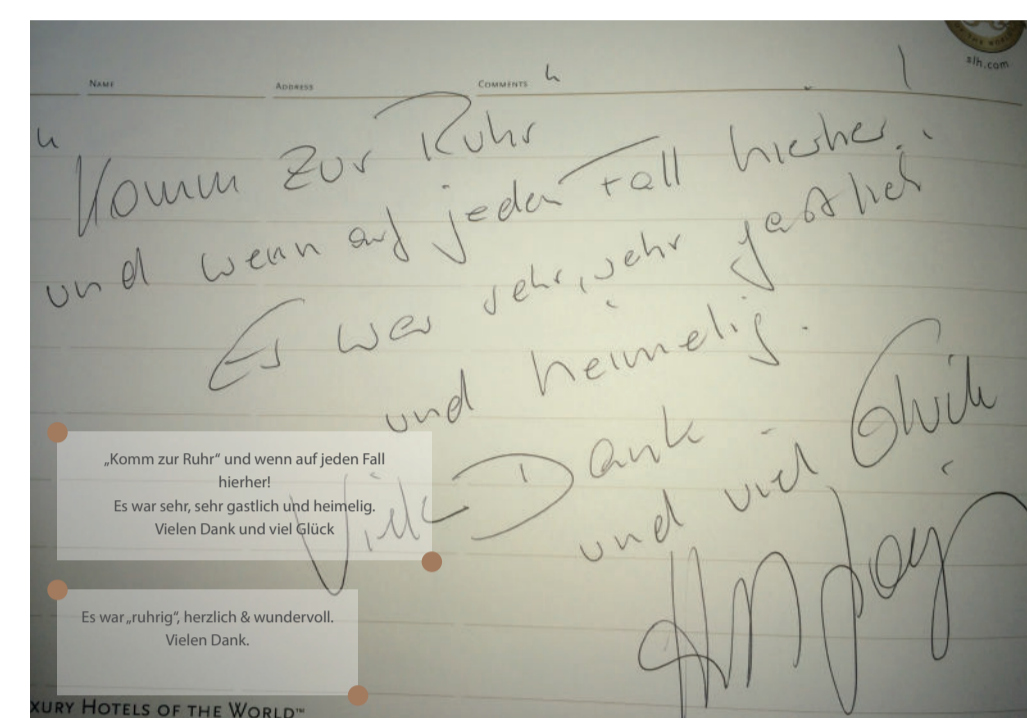 slh.com
NAME ADDRESS COMMENTS
Komm zur Ruhr
und wenn auf jeden Fall hierher!
Es war sehr, sehr gastlich
und heimelig.
Viele Dank
und viel Glück
„Komm zur Ruhr“ und wenn auf jeden Fall
hierher!
Es war sehr, sehr gastlich und heimelig.
Vielen Dank und viel Glück
Es war „ruhrig“, herzlich & wundervoll.
Vielen Dank.
XURY HOTELS OF THE WORLD™